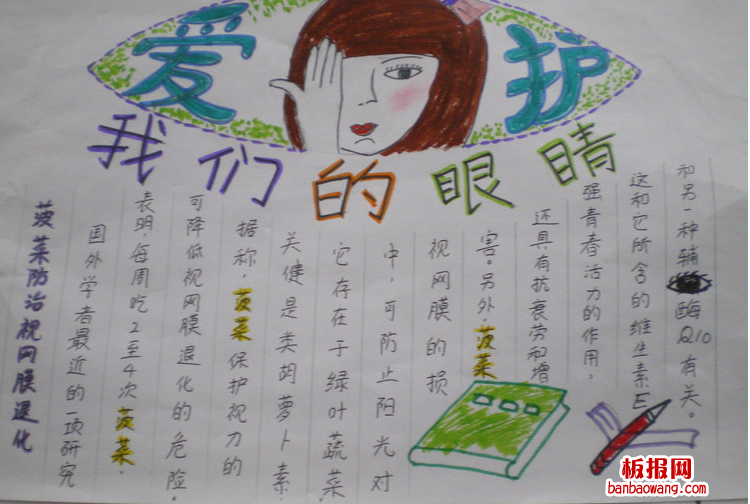 爱护
我们的眼睛
菠菜防治视网膜退化
国外学者最近的一项研究
表明,每周吃2至4次菠菜,
可降低视网膜退化的危险.
据称,菠菜保护视力的
关健是类胡萝卜素.
它存在于绿叶蔬菜
中,可防止阳光对
视网膜的损
害。另外,菠菜
还具有抗衰劳和增
强青春活力的作用,
这和它所含的维生素E
和另一种辅酶Q10有关。
板报网
banbaowang.com